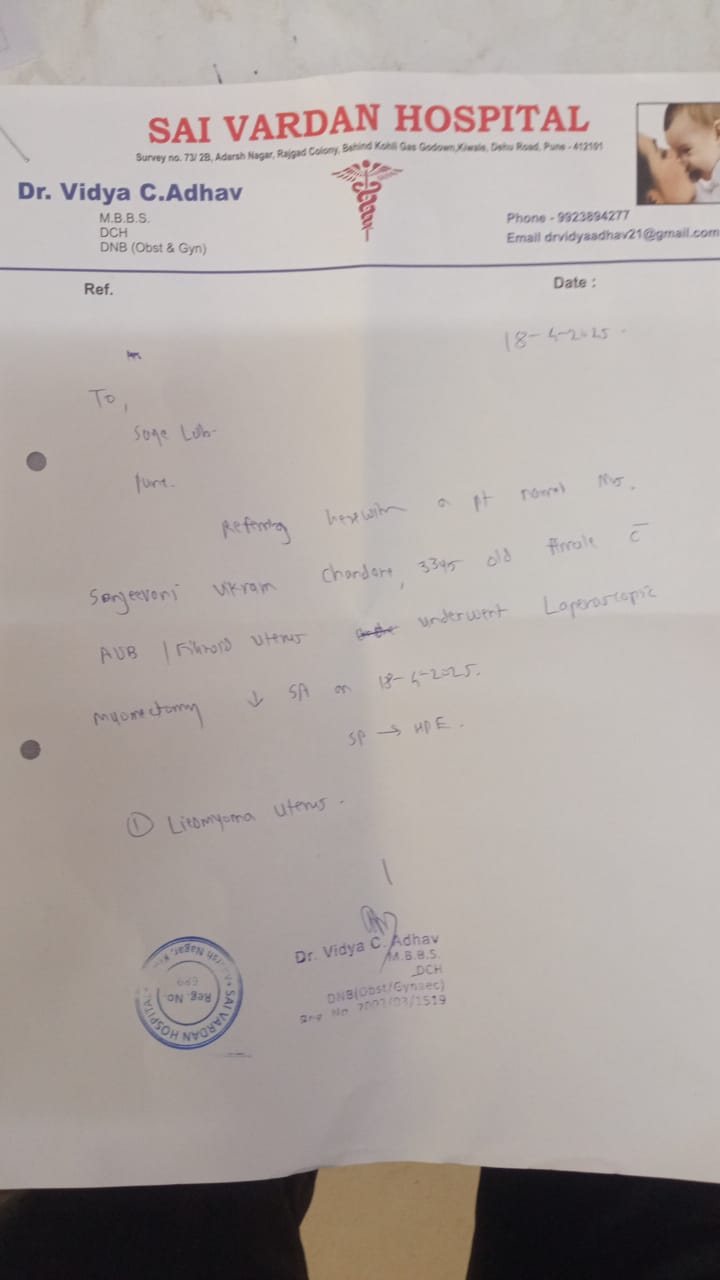 SAI VARDAN HOSPITAL
Survey no. 73/ 2B, Adarsh Nagar, Rajgad Colony, Behind Kohli Gas Godown,Kiwale, Dehu Road, Pune - 412101
Dr. Vidya C.Adhav
M.B.B.S.
DCH
DNB (Obst & Gyn)
Phone - 9923894277
Email drvidyaadhav21@gmail.com
Ref.
Date :
18-4-2025
To,
Lab
Referring herewith a pt named Mrs.
Vikram old female c̄
AUB / Fibroid uterus underwent Laperoscopic
myomectomy ↓ SA on 18-4-2025.
SP → HPE.
① uterus.
Dr. Vidya C. Adhav
M.B.B.S.
DCH
DNB(Obst/Gynaec)
Reg No.
SAI VARDAN HOSPITAL
Reg. No.